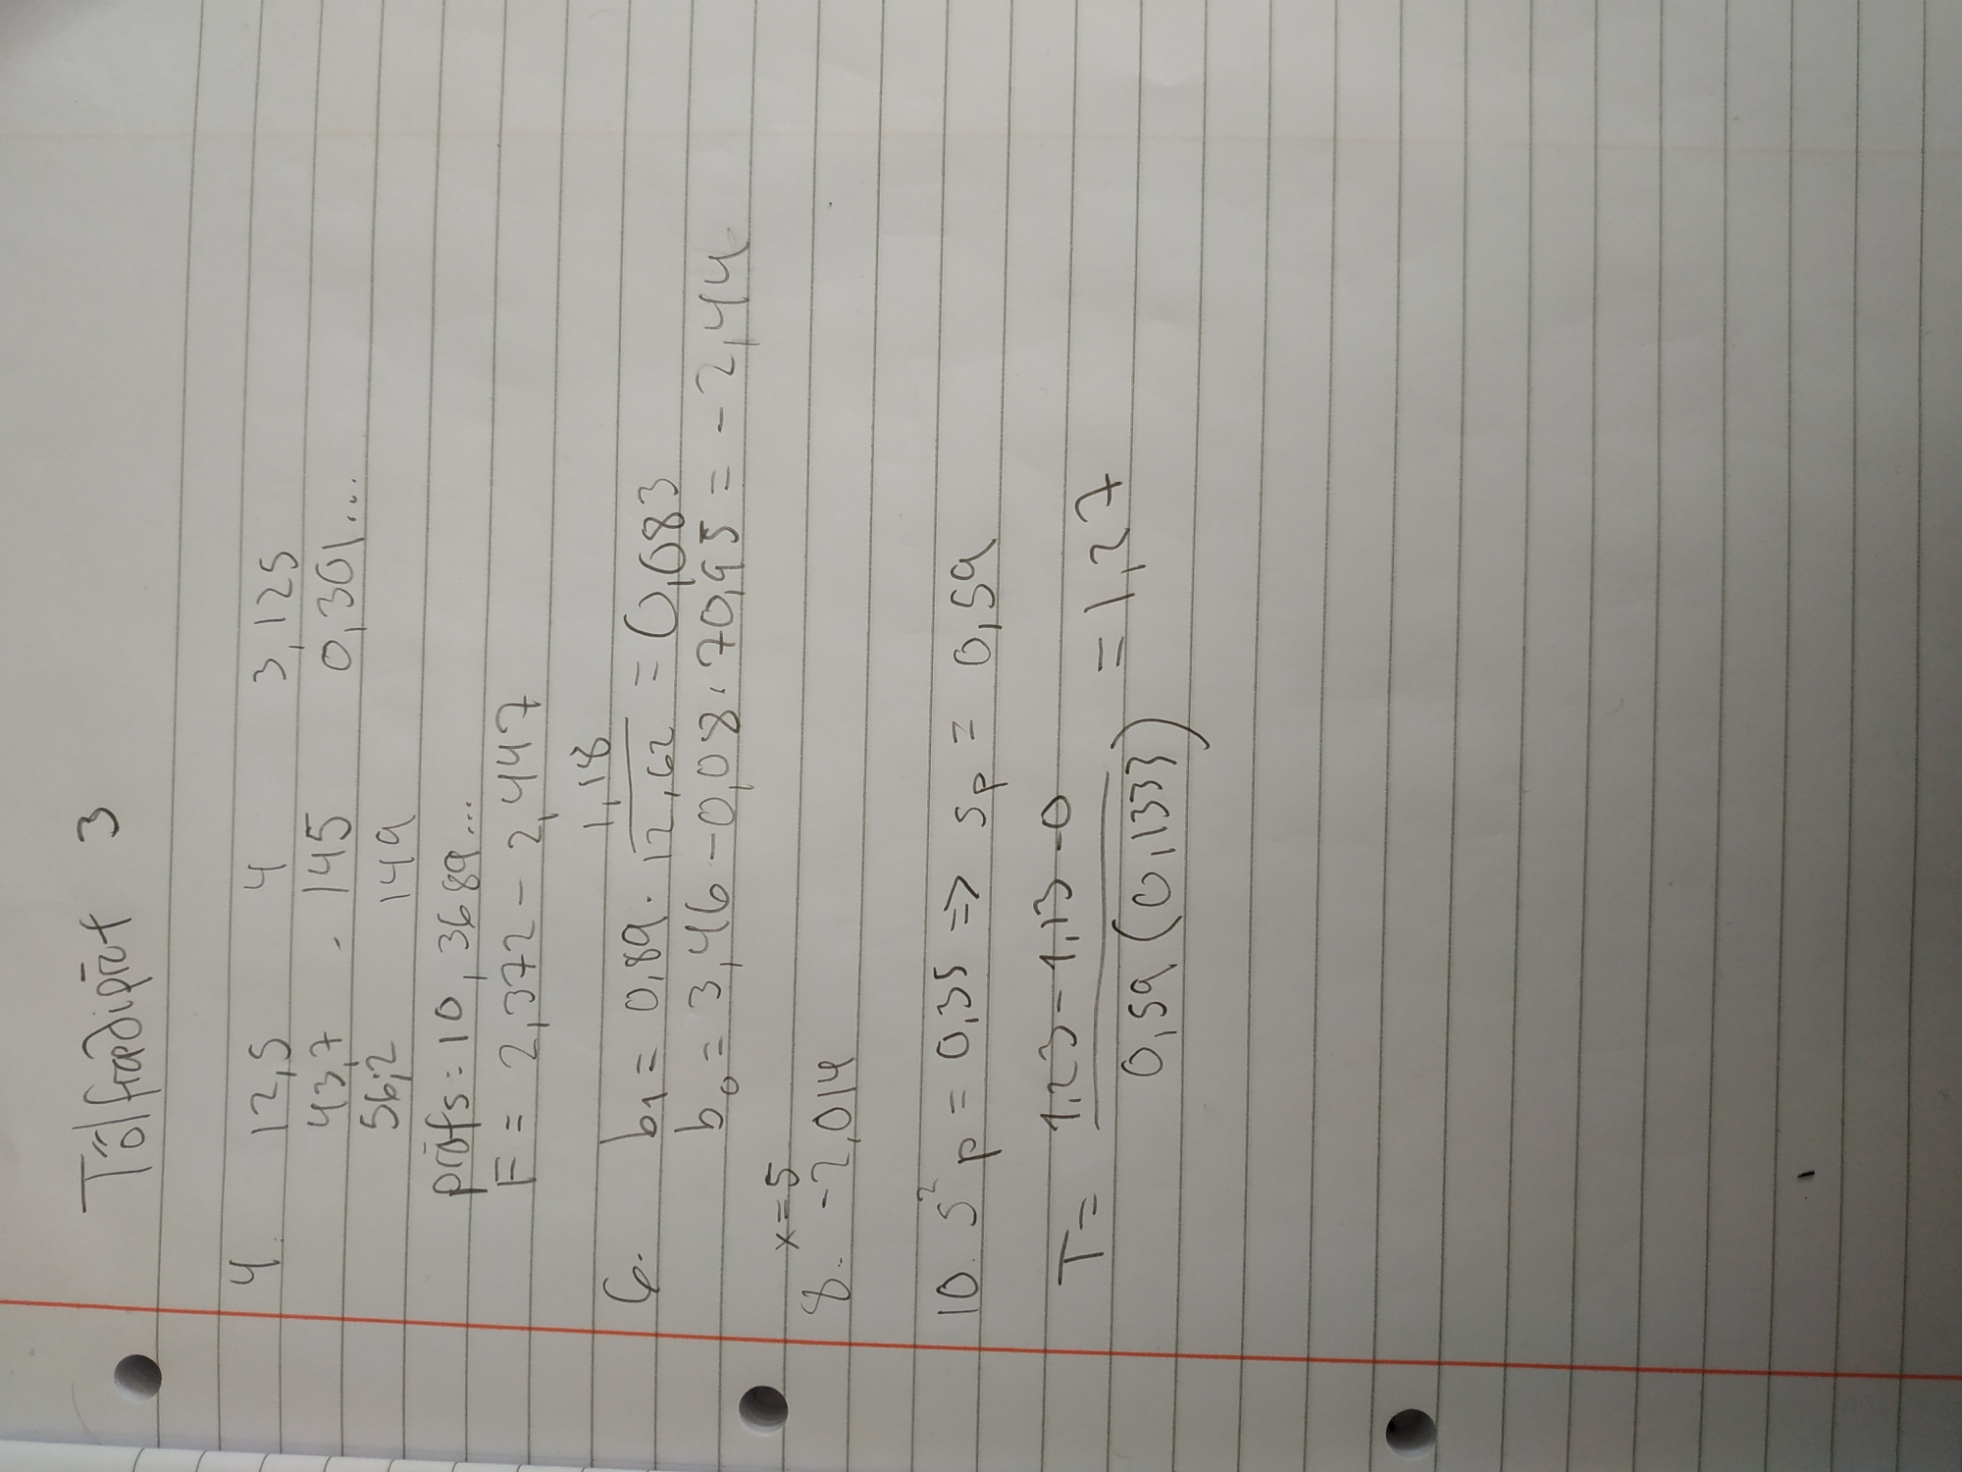 Tölfræðipróf 3
4. 12,5 4 3,125
43,7 145 0,301...
56,2 149
prófs = 10,3689...
F = 2,372 - 2,447
6. b₁ = 0,89 · 1,18 / 12,62 = 0,083
b₀ = 3,46 - 0,08 · 70,95 = -2,44
x = 5
8. -2,014
10. s²p = 0,35 => sp = 0,59
T = 1,23 - 1,13 - 0 / 0,59 (0,1333) = 1,27